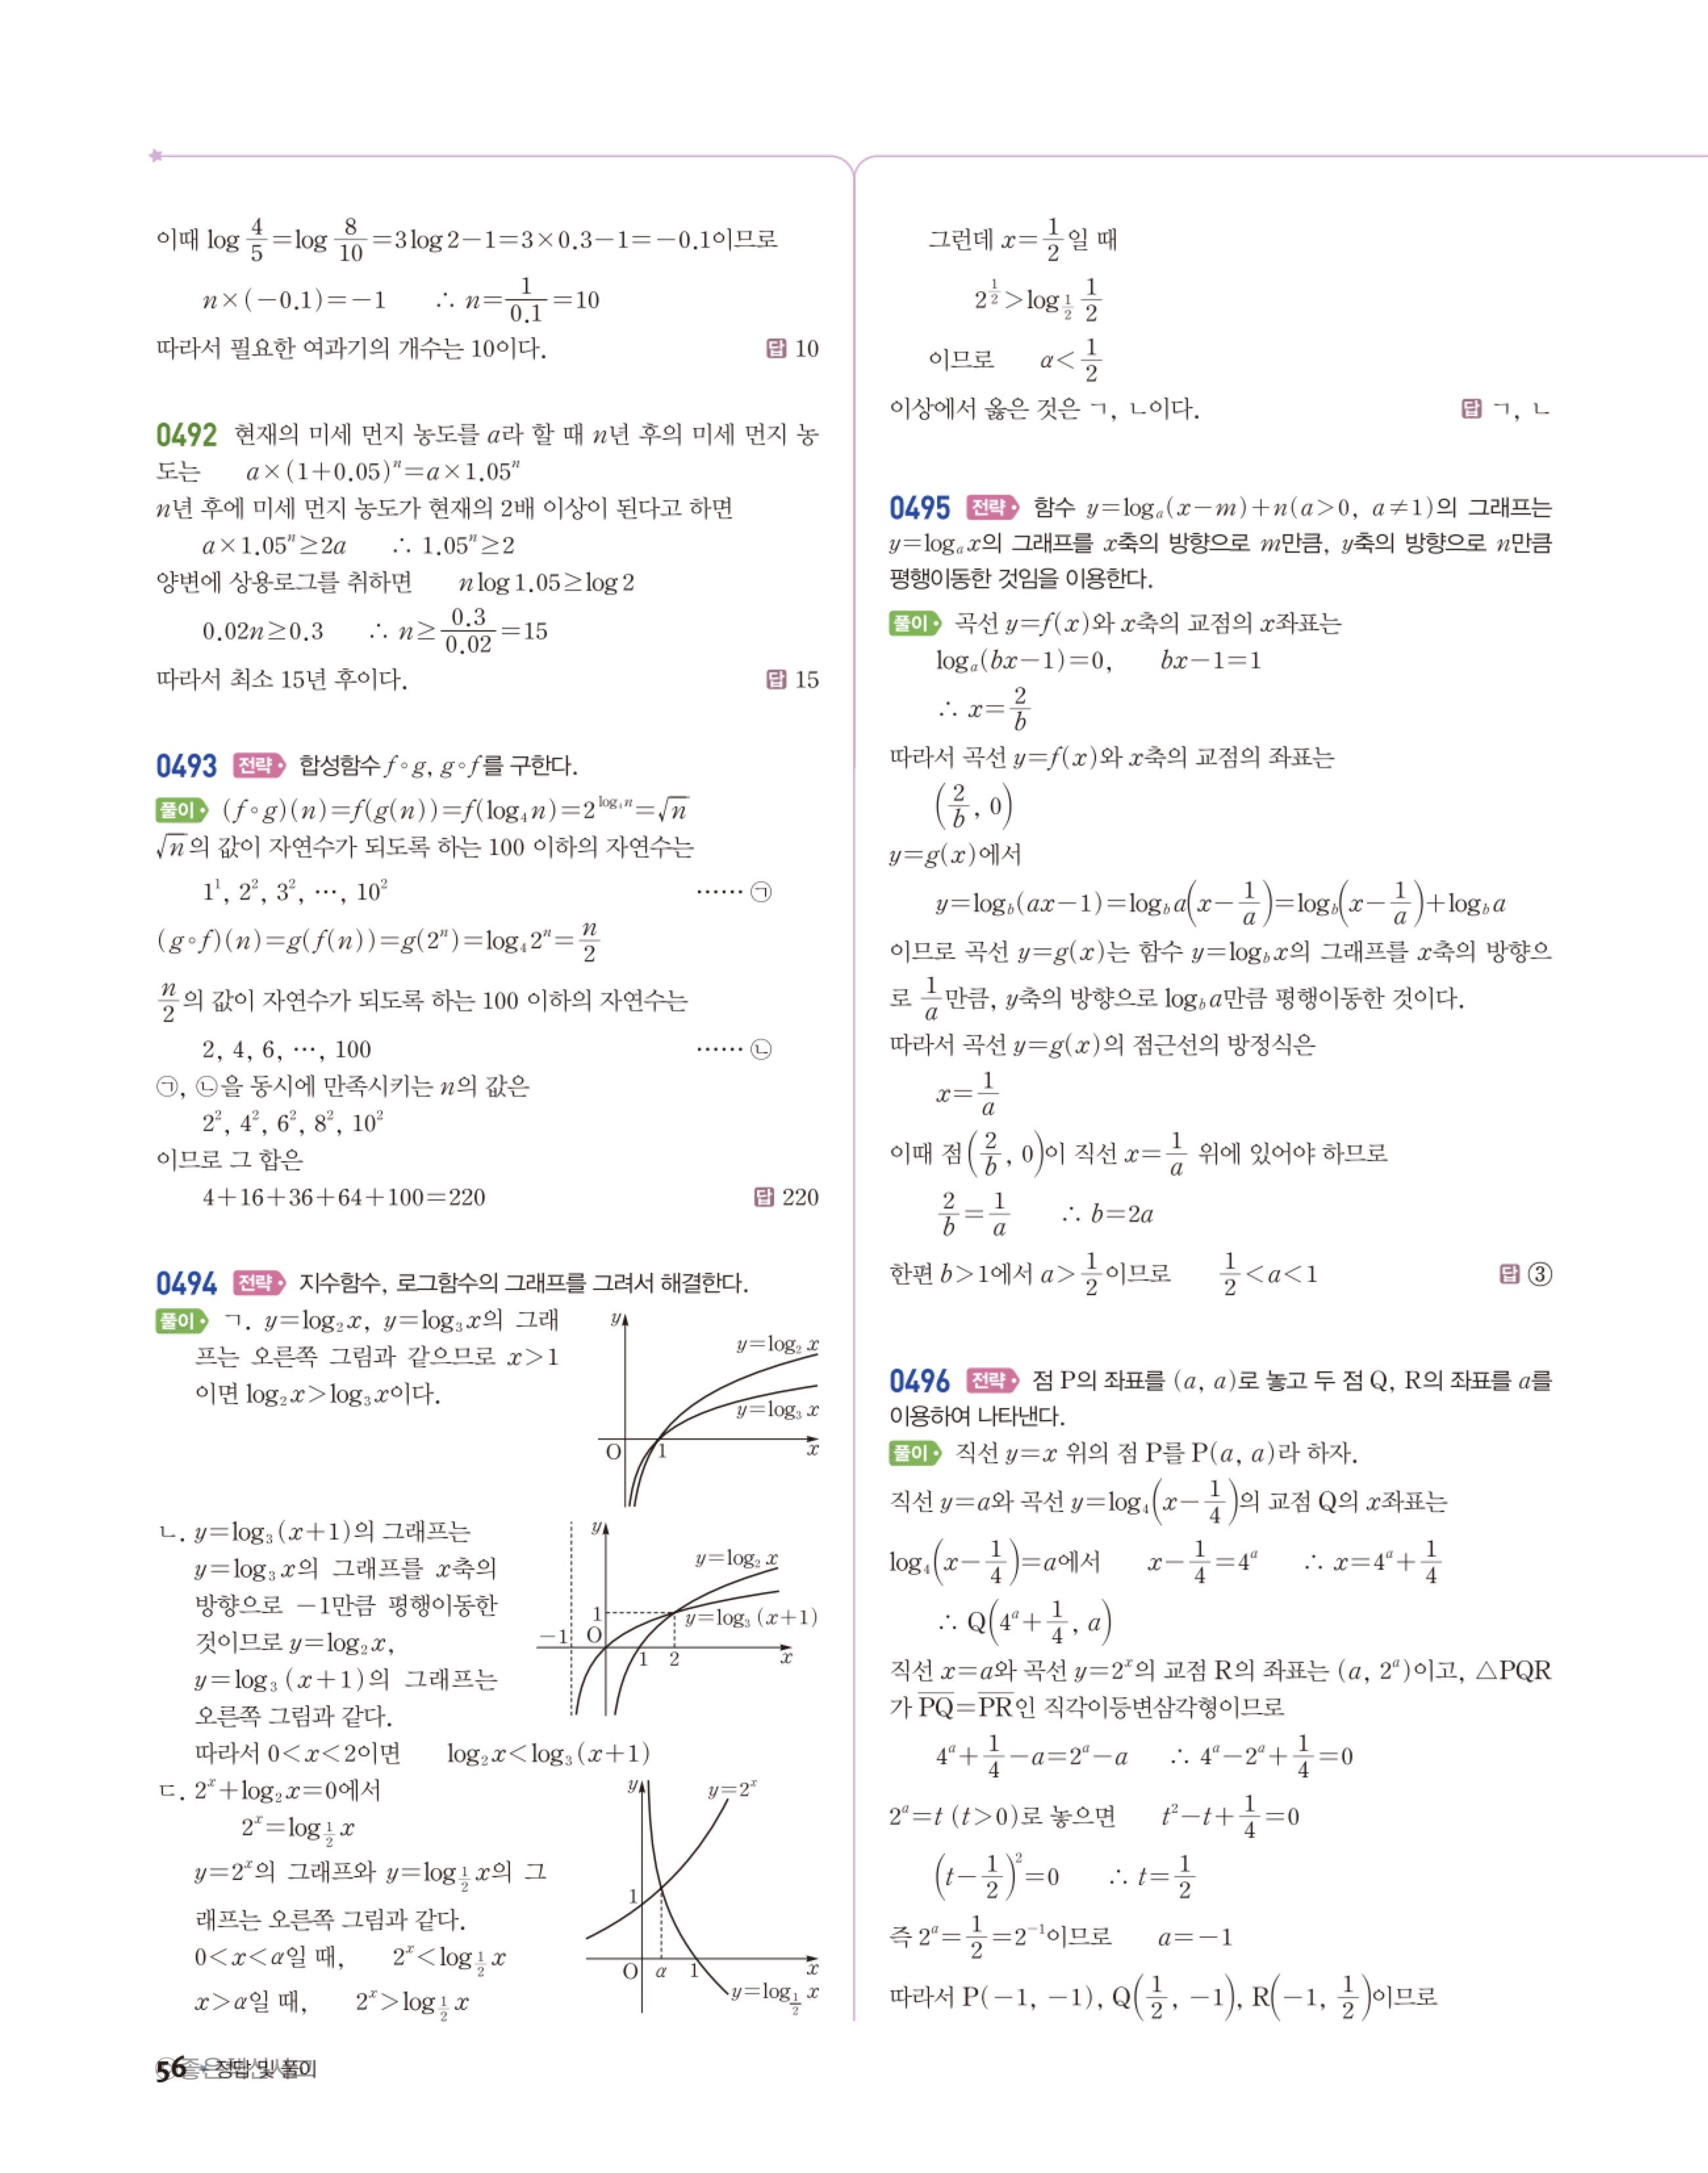 이때 log 4/5 = log 8/10 = 3 log 2−1=3×0.3−1=−0.1이므로
n×(−0.1)=−1 ∴ n= 1/0.1 =10
따라서 필요한 여과기의 개수는 10이다. 답 10
0492 현재의 미세 먼지 농도를 a라 할 때 n년 후의 미세 먼지 농
도는 a×(1+0.05)ⁿ=a×1.05ⁿ
n년 후에 미세 먼지 농도가 현재의 2배 이상이 된다고 하면
a×1.05ⁿ≥2a ∴ 1.05ⁿ≥2
양변에 상용로그를 취하면 n log 1.05≥log 2
0.02n≥0.3 ∴ n≥ 0.3/0.02 =15
따라서 최소 15년 후이다. 답 15
0493 전략 합성함수 f∘g, g∘f를 구한다.
풀이 (f∘g)(n)=f(g(n))=f(log₄ n)=2^(log₄ n)=√n
√n의 값이 자연수가 되도록 하는 100 이하의 자연수는
1¹, 2², 3², ⋯, 10² ⋯⋯ ㉠
(g∘f)(n)=g(f(n))=g(2ⁿ)=log₄ 2ⁿ= n/2
n/2의 값이 자연수가 되도록 하는 100 이하의 자연수는
2, 4, 6, ⋯, 100 ⋯⋯ ㉡
㉠, ㉡을 동시에 만족시키는 n의 값은
2², 4², 6², 8², 10²
이므로 그 합은
4+16+36+64+100=220 답 220
0494 전략 지수함수, 로그함수의 그래프를 그려서 해결한다.
풀이 ㄱ. y=log₂ x, y=log₃ x의 그래
프는 오른쪽 그림과 같으므로 x>1
이면 log₂ x>log₃ x이다.
y
y=log₂ x
y=log₃ x
O 1 x
ㄴ. y=log₃ (x+1)의 그래프는
y=log₃ x의 그래프를 x축의
방향으로 −1만큼 평행이동한
것이므로 y=log₂ x,
y=log₃ (x+1)의 그래프는
오른쪽 그림과 같다.
y
y=log₂ x
1 y=log₃ (x+1)
−1 O
1 2 x
따라서 0<x<2이면 log₂ x<log₃ (x+1)
ㄷ. 2ˣ+log₂ x=0에서
2ˣ=log_(1/2) x
y=2ˣ의 그래프와 y=log_(1/2) x의 그
래프는 오른쪽 그림과 같다.
0<x<α일 때, 2ˣ<log_(1/2) x
x>α일 때, 2ˣ>log_(1/2) x
y y=2ˣ
1
O α 1 x
y=log_(1/2) x
그런데 x= 1/2 일 때
2^(1/2)>log_(1/2) 1/2
이므로 α< 1/2
이상에서 옳은 것은 ㄱ, ㄴ이다. 답 ㄱ, ㄴ
0495 전략 함수 y=logₐ(x−m)+n(a>0, a≠1)의 그래프는
y=logₐ x의 그래프를 x축의 방향으로 m만큼, y축의 방향으로 n만큼
평행이동한 것임을 이용한다.
풀이 곡선 y=f(x)와 x축의 교점의 x좌표는
logₐ(bx−1)=0, bx−1=1
∴ x= 2/b
따라서 곡선 y=f(x)와 x축의 교점의 좌표는
(2/b, 0)
y=g(x)에서
y=log_b(ax−1)=log_b a(x− 1/a)=log_b(x− 1/a)+log_b a
이므로 곡선 y=g(x)는 함수 y=log_b x의 그래프를 x축의 방향으
로 1/a 만큼, y축의 방향으로 log_b a만큼 평행이동한 것이다.
따라서 곡선 y=g(x)의 점근선의 방정식은
x= 1/a
이때 점 (2/b, 0)이 직선 x= 1/a 위에 있어야 하므로
2/b = 1/a ∴ b=2a
한편 b>1에서 a> 1/2 이므로 1/2 <a<1 답 ③
0496 전략 점 P의 좌표를 (a, a)로 놓고 두 점 Q, R의 좌표를 a를
이용하여 나타낸다.
풀이 직선 y=x 위의 점 P를 P(a, a)라 하자.
직선 y=a와 곡선 y=log₄(x− 1/4)의 교점 Q의 x좌표는
log₄(x− 1/4)=a에서 x− 1/4 =4ᵃ ∴ x=4ᵃ+ 1/4
∴ Q(4ᵃ+ 1/4, a)
직선 x=a와 곡선 y=2ˣ의 교점 R의 좌표는 (a, 2ᵃ)이고, △PQR
가 P̅Q̅=P̅R̅인 직각이등변삼각형이므로
4ᵃ+ 1/4 −a=2ᵃ−a ∴ 4ᵃ−2ᵃ+ 1/4 =0
2ᵃ=t (t>0)로 놓으면 t²−t+ 1/4 =0
(t− 1/2)²=0 ∴ t= 1/2
즉 2ᵃ= 1/2 =2⁻¹이므로 a=−1
따라서 P(−1, −1), Q(1/2, −1), R(−1, 1/2)이므로
56 정답 및 풀이